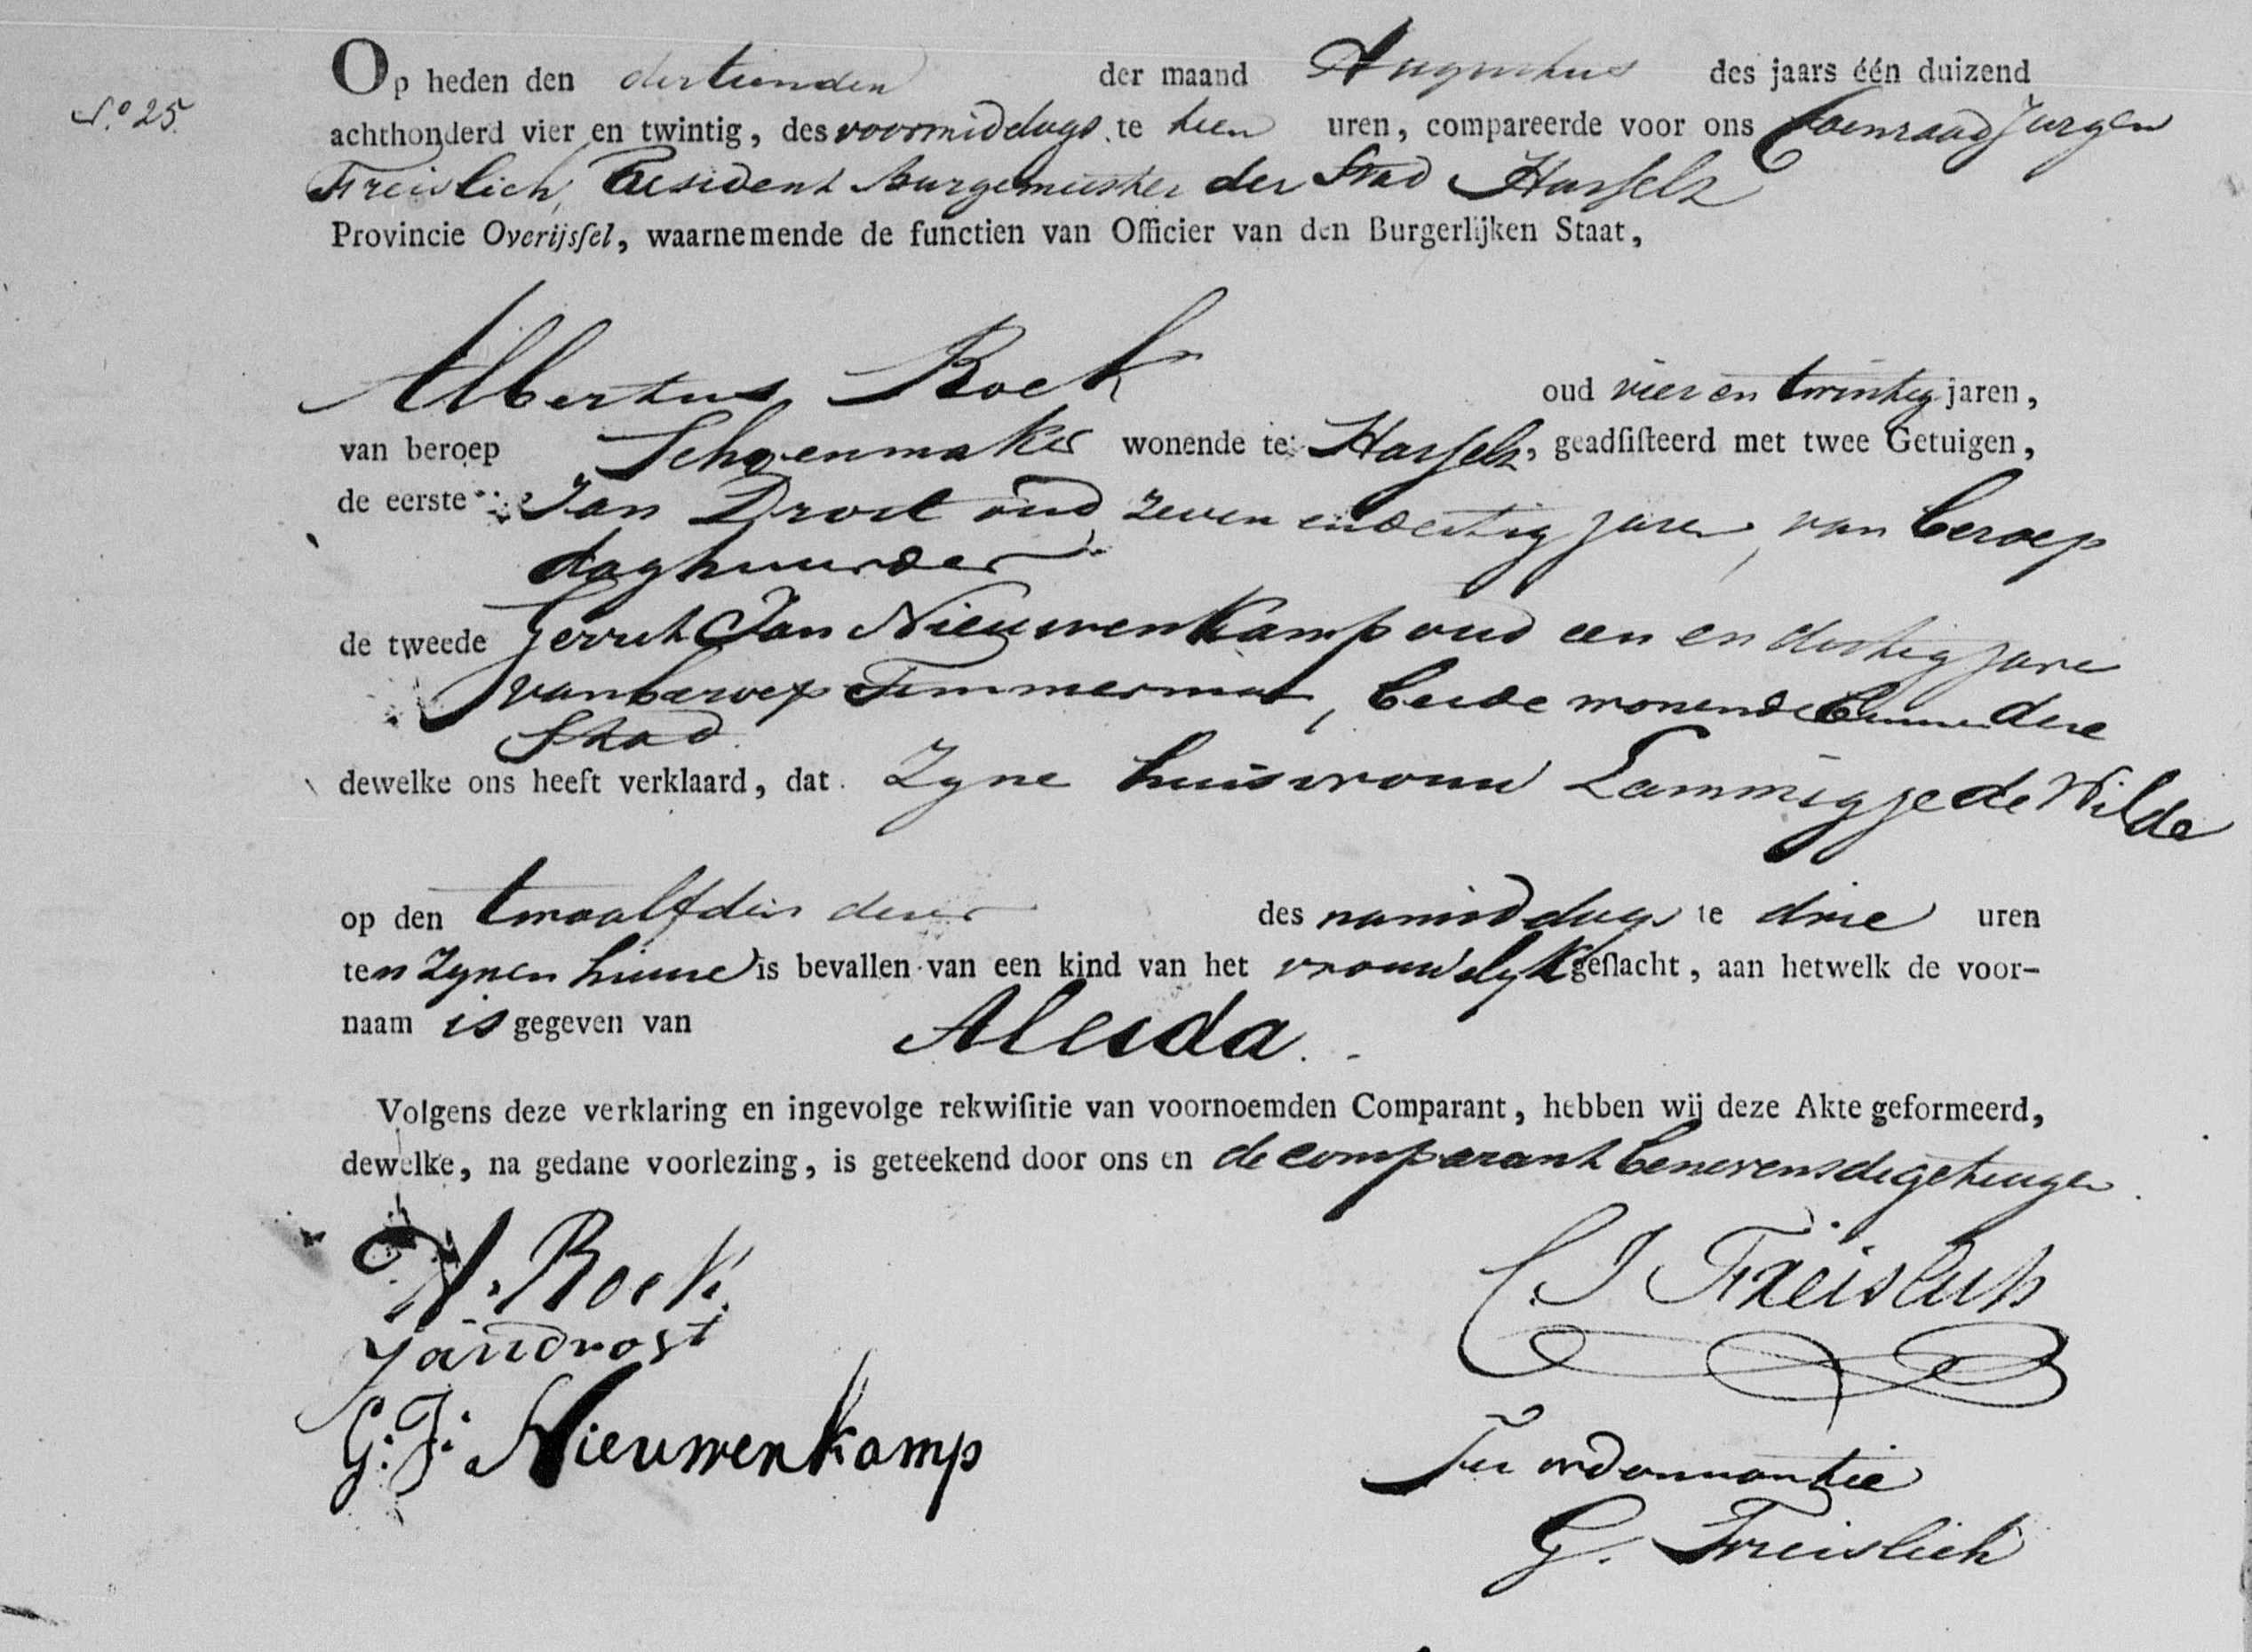 Op heden den dertienden der maand Augustus des jaars één duizend
N.o 25.
achthonderd vier en twintig, des voormiddags te tien uren, compareerde voor ons Coenraad Jurgen
Freislich, President Burgemeester der Stad Hasselt
Provincie Overijsſel, waarnemende de functien van Officier van den Burgerlijken Staat,
Albertus Roek oud vier en twintig jaren,
van beroep Schoenmaker wonende te Hasselt, geadſiſteerd met twee Getuigen,
de eerste Jan Drost oud zeven en dertig jaren, van beroep
daghuurder
de tweede Gerrit Jan Nieuwenkamp oud een en dertig jare
van beroep Timmerman, beide wonende binnen dese
Stad.
dewelke ons heeft verklaard, dat Zyne huisvrouw Lammigje de Wilde
op den twaalfden deser des namiddags te drie uren
ten Zynen huise is bevallen van een kind van het vrouwelyk geſlacht, aan hetwelk de voor-
naam is gegeven van Aleida.
Volgens deze verklaring en ingevolge rekwiſitie van voornoemden Comparant, hebben wij deze Akte geformeerd,
dewelke, na gedane voorlezing, is geteekend door ons en de comparant benevens de getuigen.
A. Roek.
Jandrost
G: J: Nieuwenkamp
C. J Freislich
Ter ordonnantie
G. Freislich